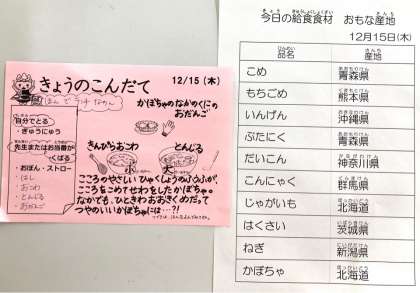 きょうのこんだて 12/15 (木)
かぼちゃのなかのくにの
おだんご
自分でとる
・ぎゅうにゅう
先生またはお当番が
くばる
・おぼん・ストロー
・はし
・おこわ
・とんじる
・おだんご
きんぴらおこわ
とんじる
小
大
こころのやさしい ひゃくしょうのふうふが、
こころをこめて せわをしたかぼちゃの
なかでも、ひときわおおきくめだって
つやのいいかぼちゃには…?!
今日の給食食材 おもな産地
12月15日(木)
品名 産地
こめ 青森県
もちごめ 熊本県
いんげん 沖縄県
ぶたにく 青森県
だいこん 神奈川県
こんにゃく 群馬県
じゃがいも 北海道
はくさい 茨城県
ねぎ 新潟県
かぼちゃ 北海道